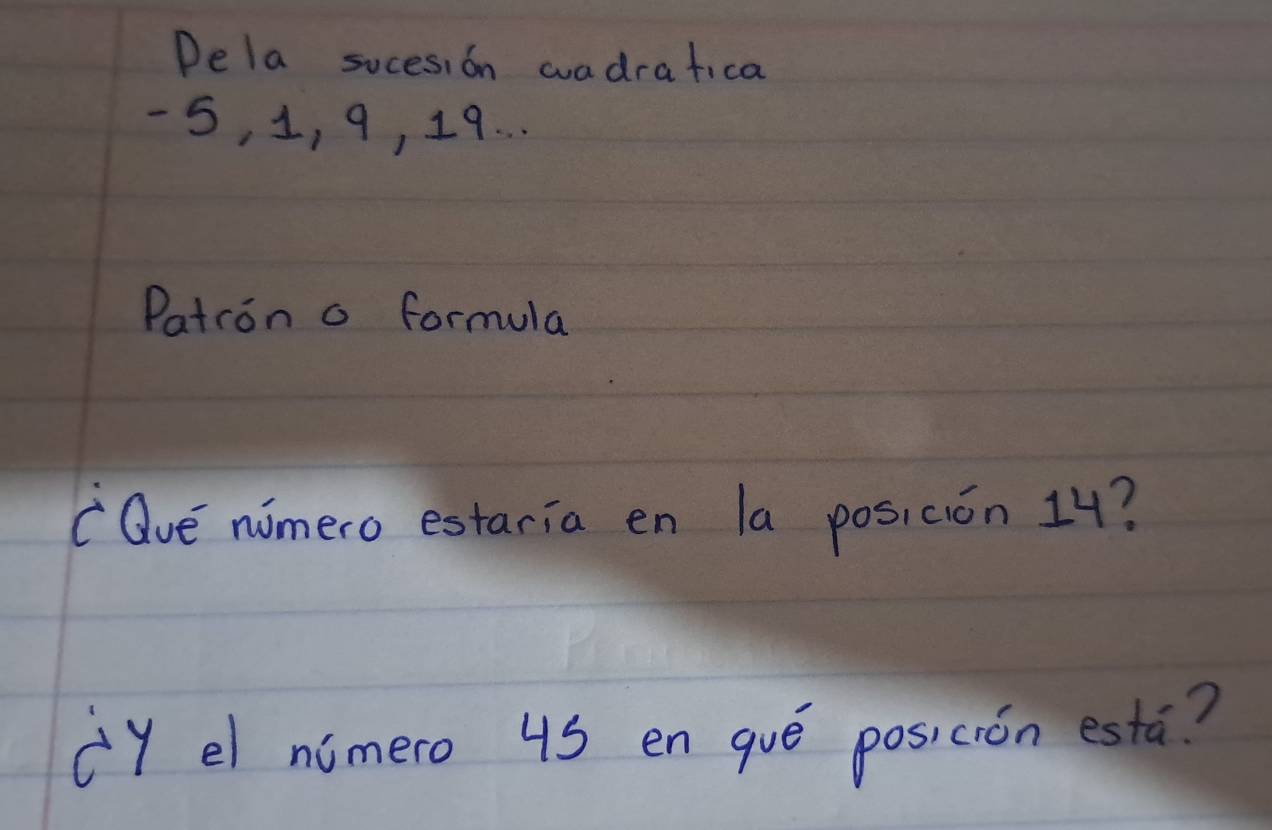 De la sucesión cuadratica
-5, 1, 9, 19...
Patrón o formula
¿Qué número estaría en la posición 14?
¿Y el número 45 en qué posición está?